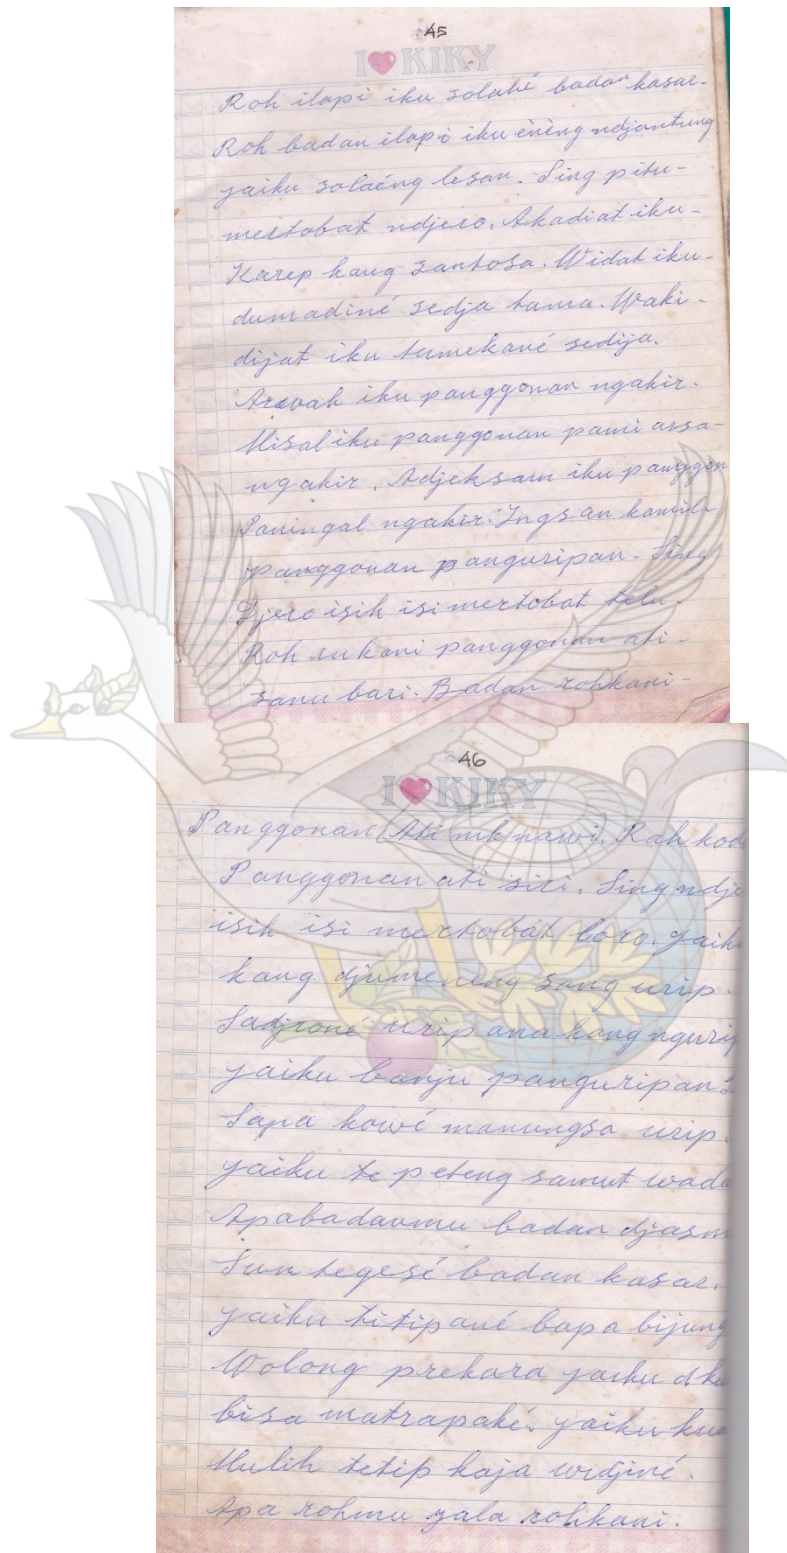 45
I ❤ KIKY
Roh ilapi iku solahé badan kasar.
Roh badan ilapi iku ènèng ndjantung
jaiku solaéng lesan. Sing pitu-
mertobat ndjero. Akadiat iku-
Karep kang santosa. Widat iku-
dumadiné sedja tama. Waki-
dijat iku tumekané sedija.
Arwah iku panggonan ngakir.
Misal iku panggonan pami arsa-
ngakir. Adjeksam iku panggon
Paningal ngakir. Ingsan kamil-
panggonan panguripan. Sing
Djero isih isi mertobat telu.
Roh rukani panggonan ati-
sanu bari. Badan rohkani-
46
I ❤ KIKY
Panggonan Ati mknawi. Rah
Panggonan ati siri. Sing
isih isi mertobat loro.
kang djumeneng sang urip.
Sadjroné urip ana kang
jaiku banju panguripan
Sapa kowé manungsa urip.
jaiku te peteng samut
Apabadanmu badan
Sun tegesé badan kasar.
jaiku titipané bapa bijung
Wolong prekara jaiku
bisa matrapaké. jaiku
Mulih tetip kaja widjiné.
Apa rohmu jala rohkani.